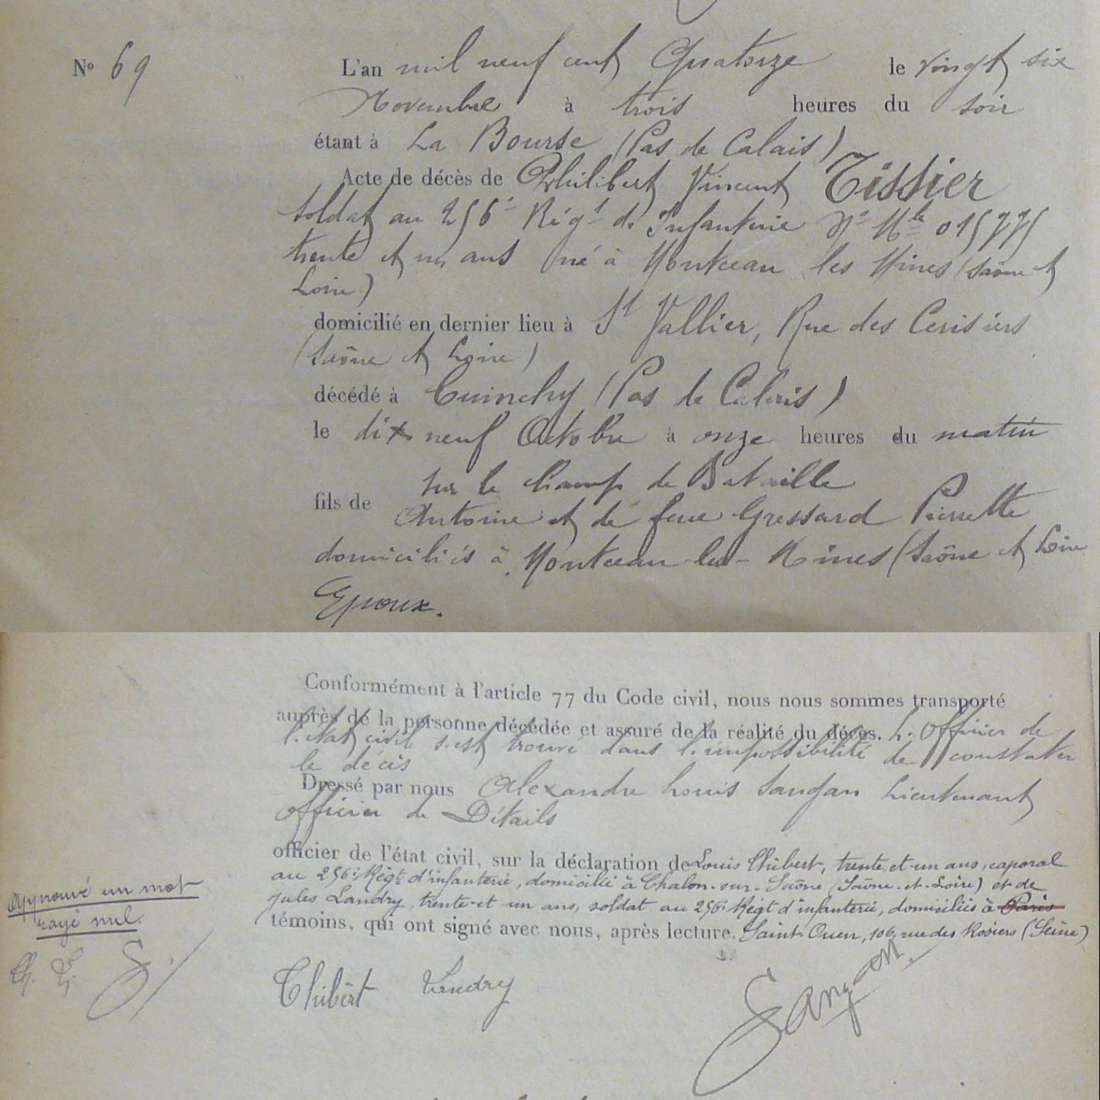 Nº 69
L'an mil neuf cent Quatorze le vingt six
Novembre à trois heures du soir
étant à La Bourse (Pas de Calais)
Acte de décès de Philibert Vincent Tissier
soldat au 256e Régt d'Infanterie Nº Mle 01577
trente et un ans né à Montceau les Mines (Saône et
Loire)
domicilié en dernier lieu à St Vallier, Rue des Cerisiers
(Saône et Loire)
décédé à Cuinchy (Pas de Calais)
le dix neuf Octobre à onze heures du matin
sur le champ de Bataille
fils de Antoine et de feue Gressard Pierrette
domiciliés à Montceau-les-Mines (Saône et Loire
Epoux.
Conformément à l'article 77 du Code civil, nous nous sommes transporté
auprès de la personne décédée et assuré de la réalité du décès. L'Officier de
l'état civil s'est trouvé dans l'impossibilité de constater
le décès
Dressé par nous Alexandre Louis Sangan Lieutenant
officier de Détails
officier de l'état civil, sur la déclaration de Louis Thibert, trente-et-un ans, caporal
au 256e Régt d'infanterie, domicilié à Chalon-sur-Saône (Saône-et-Loire) et de
Jules Landry trente-et un ans, soldat au 256e Régt d'infanterie, domiciliés à Paris
témoins, qui ont signé avec nous, après lecture. Saint Ouen, 106, rue des Rosiers (Seine)
Approuvé un mot
rayé nul.
Th. L. S.
Thibert Landry Sangan.